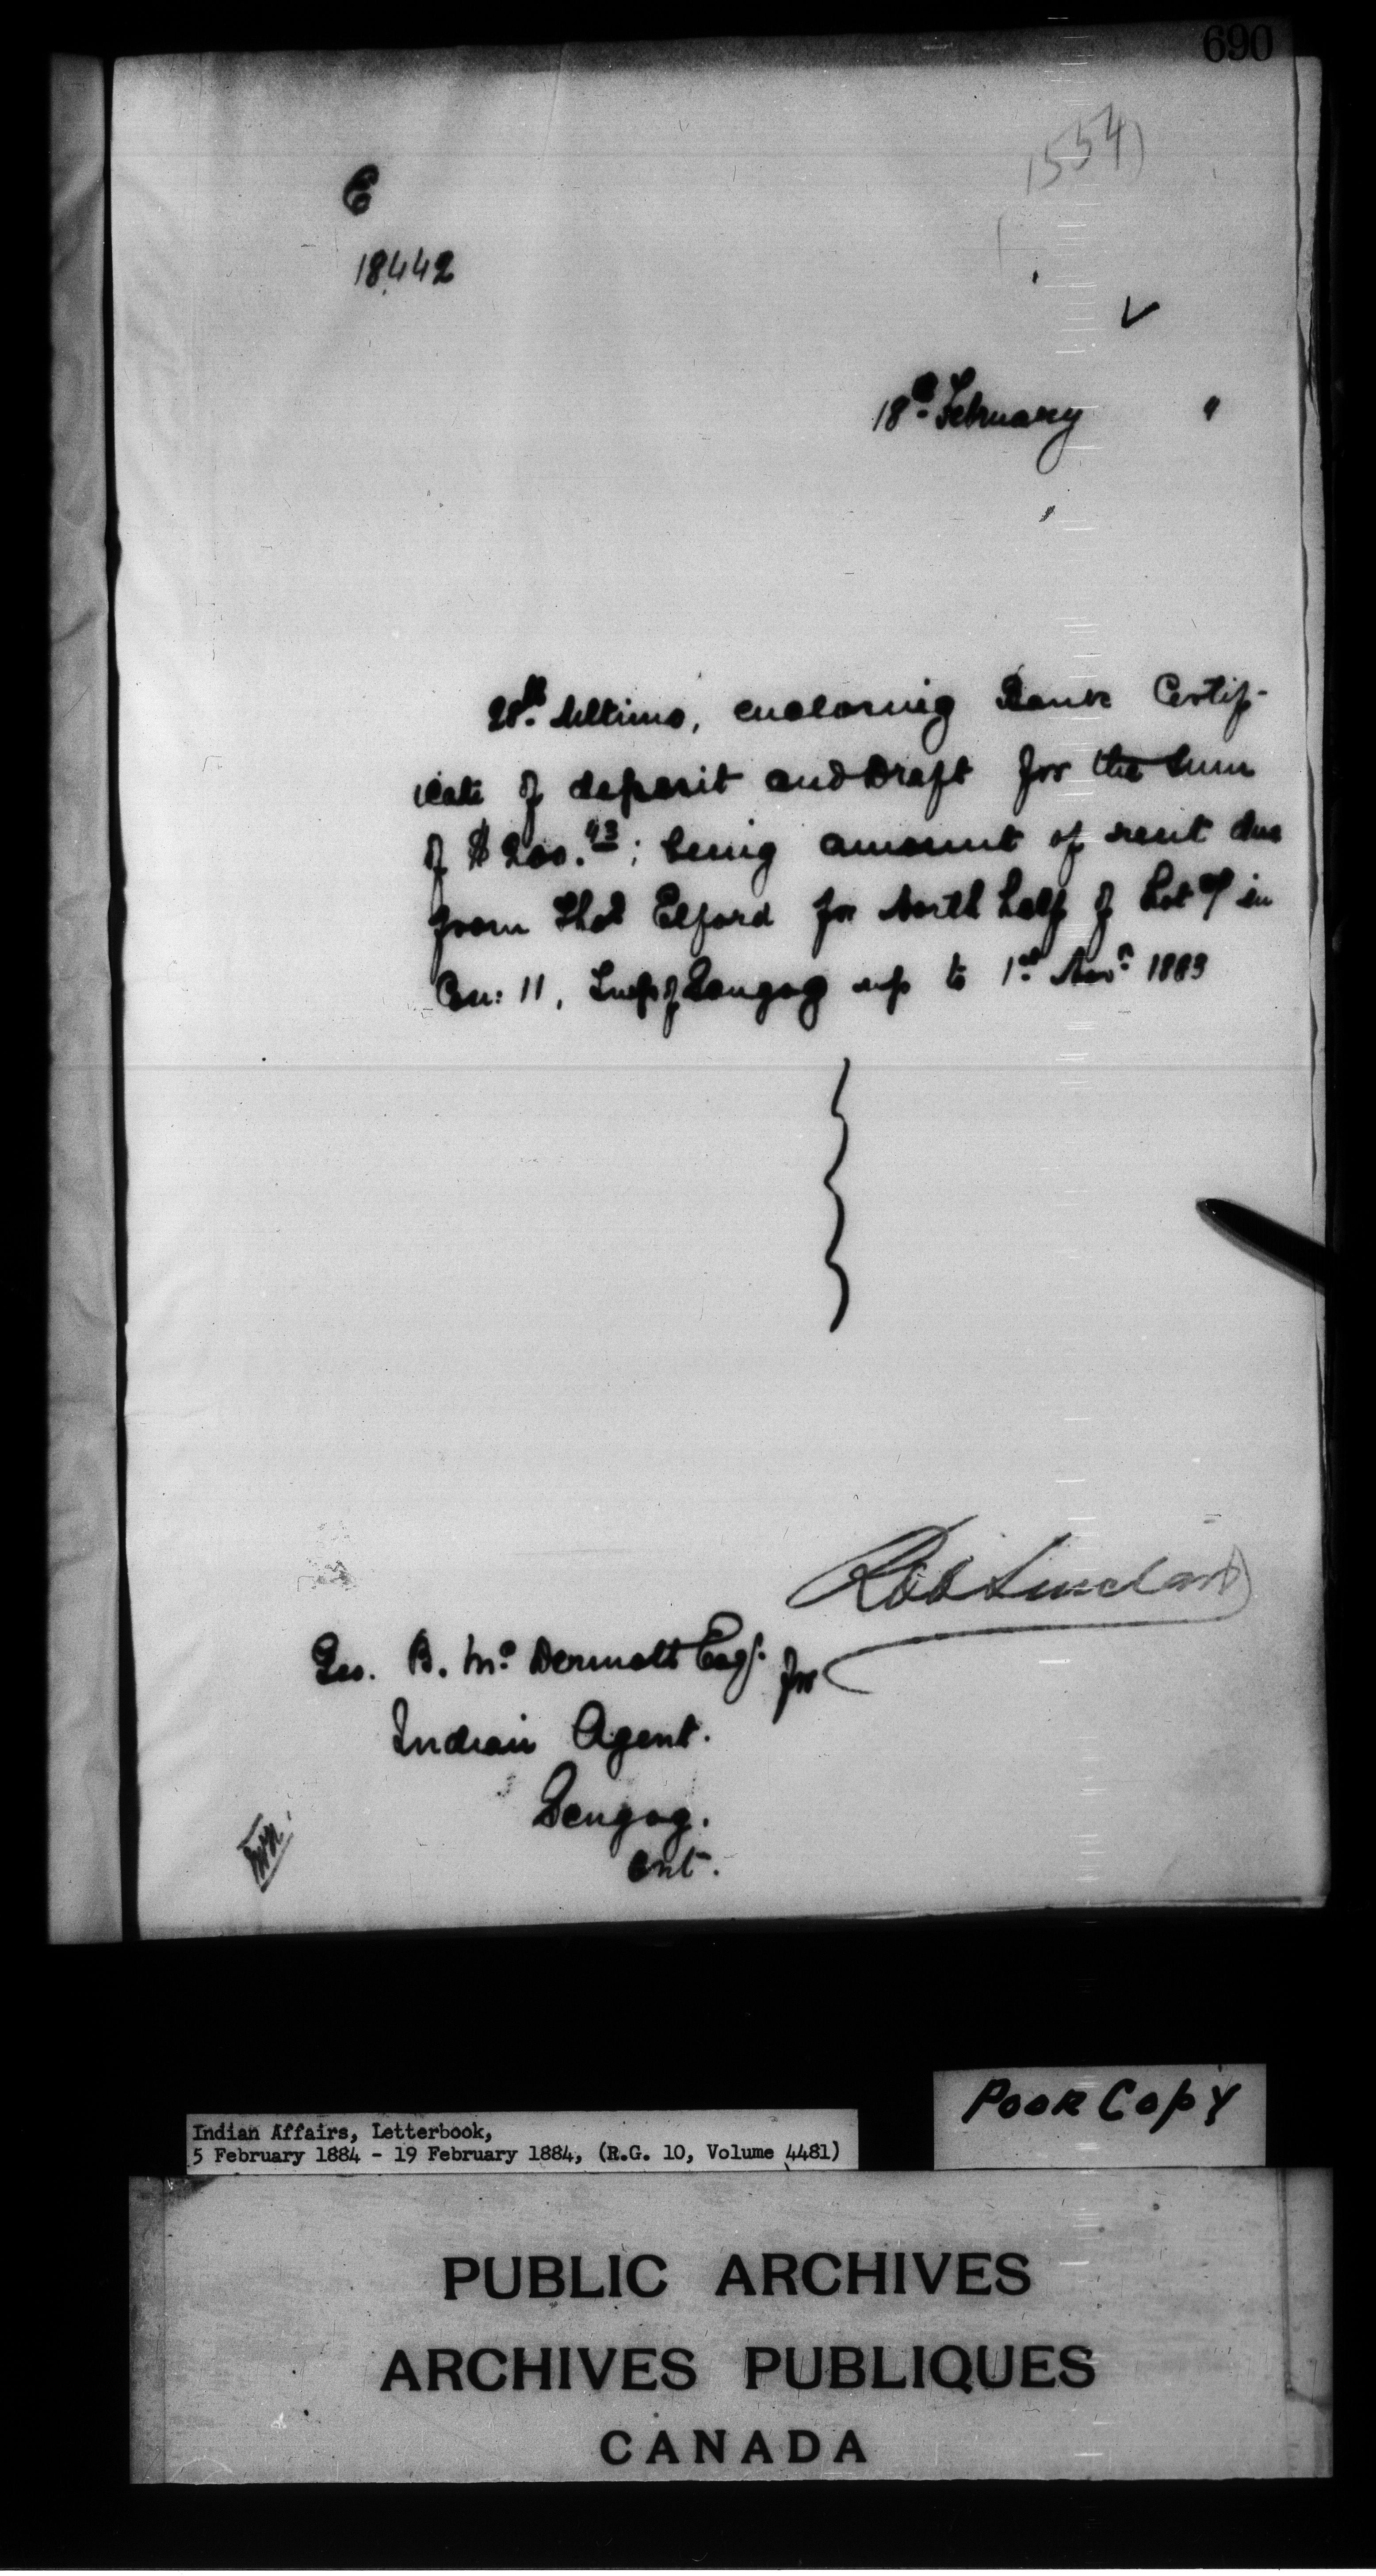 690
1554)
C
18442
18th February "
28th Ultimo, enclosing Bank Certif-
icate of deposit and Draft for the sum
of $200.93; being amount of rent due
from Thos Elford for North half of Lot 7 in
Con: 11, Twp of Scugog up to 1st Novr 1883
Rob Sinclair
Geo. B. McDermott Esq. for
Indian Agent.
Scugog.
Ont.
Poor Copy
Indian Affairs, Letterbook,
5 February 1884 - 19 February 1884, (R.G. 10, Volume 4481)
PUBLIC ARCHIVES
ARCHIVES PUBLIQUES
CANADA